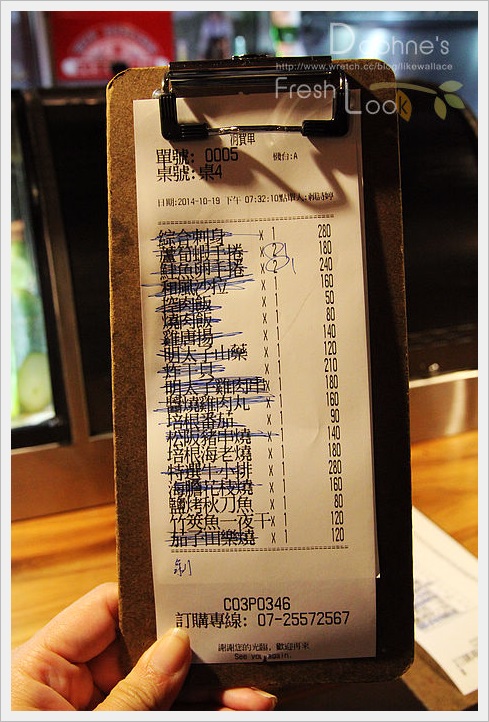 Daphne's
http://www.wretch.cc/blog/likewallace
Fresh Look
消費單
單號: 0005 機台:A
桌號:桌4
日期:2014-10-19 下午 07:32:10點單人:
綜合刺身 x 1 280
蘆筍蝦手捲 x 2 180
鮭魚卵手捲 x 2 240
和風沙拉 x 1 160
控肉飯 x 1 50
燒肉飯 x 1 80
雞唐揚 x 1 140
明太子山藥 x 1 120
炸干貝 x 1 210
明太子雞肉串 x 1 180
醬燒雞肉丸 x 1 160
培根番茄 x 1 90
松阪豬串燒 x 1 140
培根海老燒 x 1 180
特選牛小排 x 1 280
海膽花枝燒 x 1 160
鹽烤秋刀魚 x 1 80
竹筴魚一夜干 x 1 120
茄子田樂燒 x 1 120
C03P0346
訂購專線: 07-25572567
謝謝您的光臨, 歡迎再來
See you again.